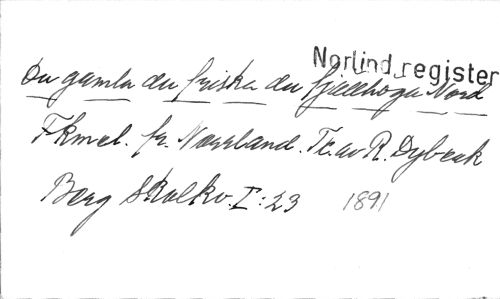 Norlind, register
Du gamla du friska du fjellhöga Nord
Fkmel. fr. Norrland. Te. av R. Dybeck
Berg Skolkv. I: 23 1891